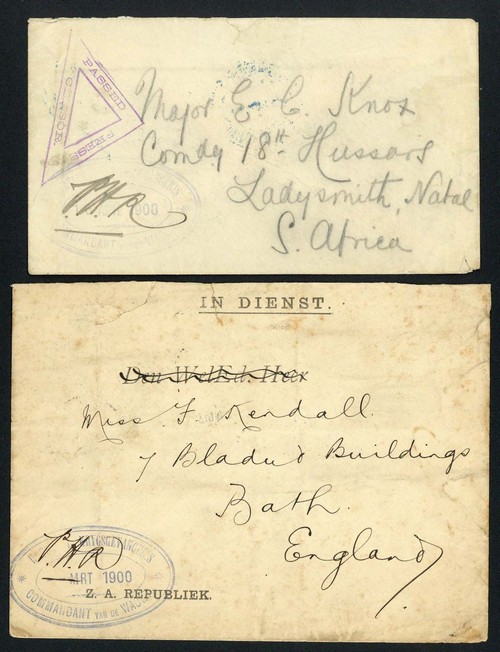 PASSED
PRESS
CENSOR.
Major E C. Knox
Comdg 18th Hussars
Ladysmith, Natal
S. Africa
P.H.R
1900
IN DIENST.
Den WelEd. Heer
Miss F. Kendall.
7 Bladud Buildings
Bath.
England
P.H.R
MRT 1900
COMMANDANT VAN DE
Z. A. REPUBLIEK.